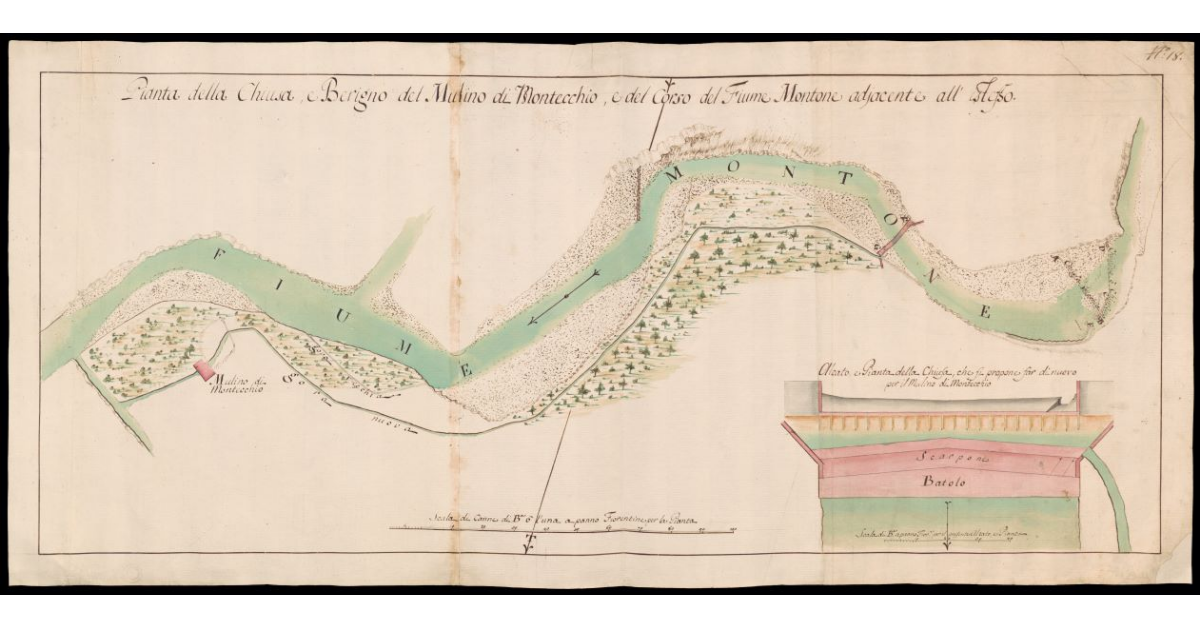 N.º 18.
Pianta della Chiusa, e Berigno del Mulino di Montecchio, e del Corso del Fiume Montone adjacente all' istesso.
FIUME MONTONE
Mulino di
Montecchio
Gora
Gora nuova
Alzato e Pianta della Chiusa, che si propone far di nuovo
per il Mulino di Montecchio
Scarpone
Batolo
Scala di Canne di B.ª 6 l'una a panno Fiorentine per la Pianta
Scala di B.ª